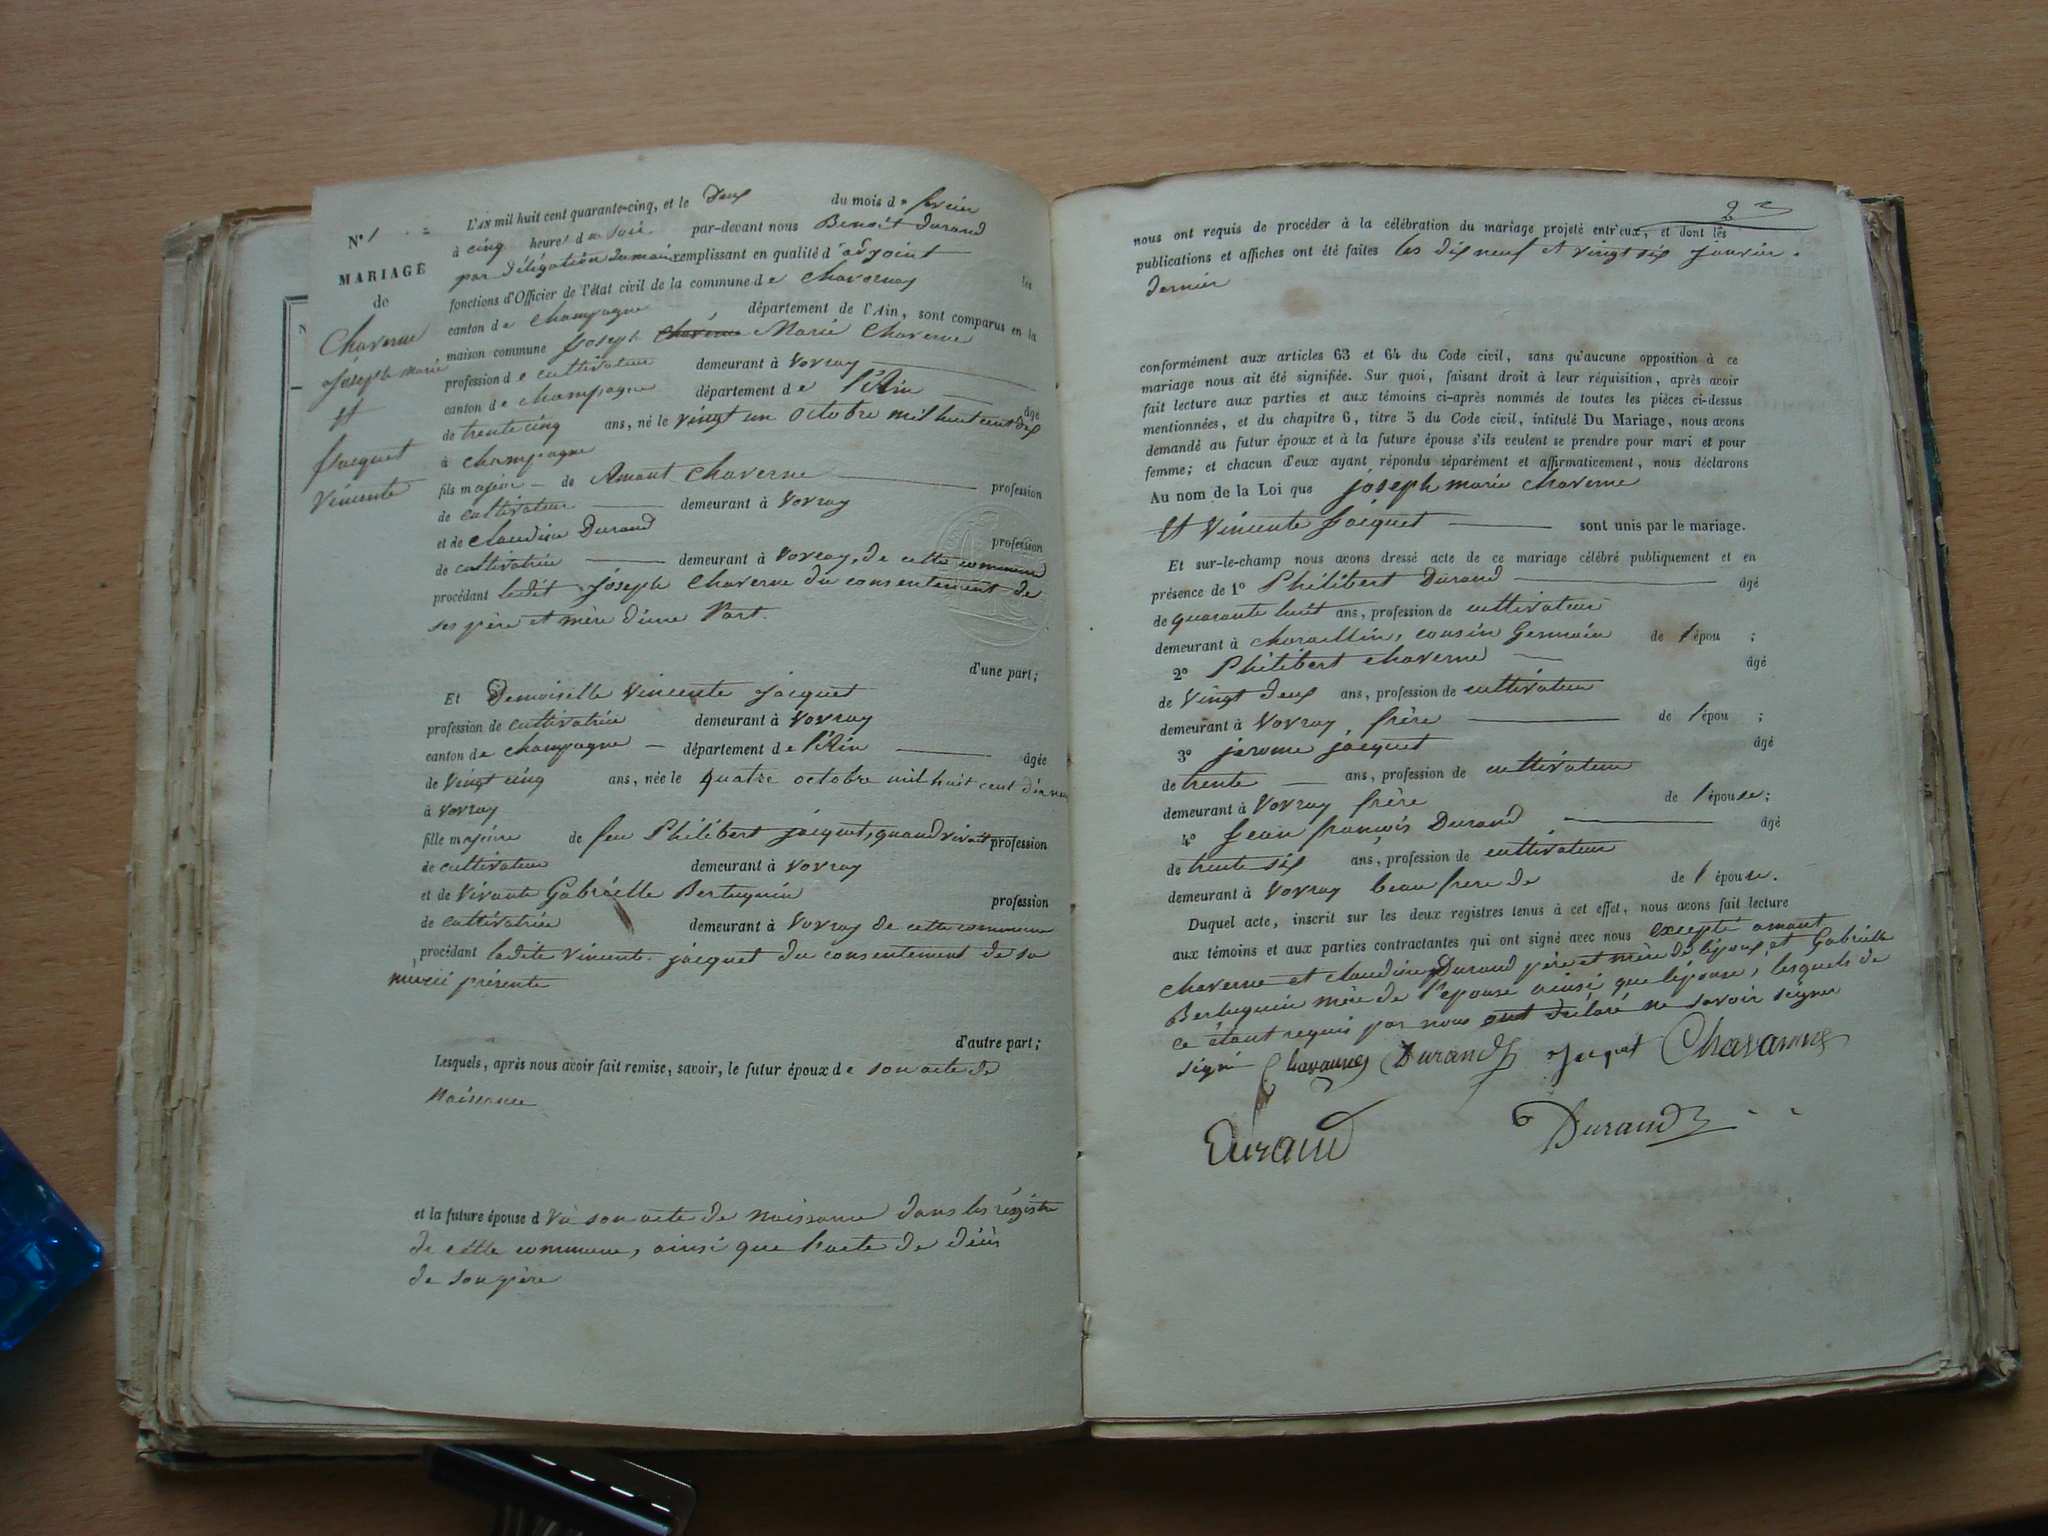 N° 1
MARIAGE
de
Chaverne
Joseph marie
et
Jacquet
Vincente
L'AN mil huit cent quarante-cinq, et le deux du mois de fevrier
à cinq heures du soir par-devant nous Benoît Durand
par délégation du maire remplissant en qualité d'adjoint les
fonctions d'Officier de l'état civil de la commune de Chavornay
canton de Champagne département de l'Ain, sont comparus en la
maison commune Joseph Marie Chaverne
profession de cultivateur demeurant à Vovray
canton de Champagne département de l'Ain âgé
de trente cinq ans, né le vingt un octobre mil huit cent dix
à Champagne
fils majeur de Amant Chaverne profession
de cultivateur demeurant à Vovray
et de Claudine Durand profession
de cultivatrice demeurant à Vovray, de cette commune
procédant ledit Joseph Chaverne du consentement de
ses père et mère d'une Part.
d'une part;
Et Demoiselle Vincente Jacquet
profession de cultivatrice demeurant à Vovray
canton de Champagne département de l'Ain âgée
de Vingt cinq ans, née le quatre octobre mil huit cent dix neuf
à Vovray
fille majeure de feu Philibert Jacquet, quand vivait profession
de cultivateur demeurant à Vovray
et de Vivante Gabrielle Berthuguin profession
de cultivatrice demeurant à Vovray de cette commune
procédant ladite Vincente Jacquet du consentement de sa
mère présente
d'autre part;
Lesquels, après nous avoir fait remise, savoir, le futur époux de son acte de
Naissance
et la future épouse d Vu son acte de naissance dans les régistre
de cette commune, ainsi que l'acte de décès
de son père
2
nous ont requis de procéder à la célébration du mariage projeté entr'eux, et dont les
publications et affiches ont été faites les dix neuf et vingt six janvier
dernier
conformément aux articles 63 et 64 du Code civil, sans qu'aucune opposition à ce
mariage nous ait été signifiée. Sur quoi, faisant droit à leur réquisition, après avoir
fait lecture aux parties et aux témoins ci-après nommés de toutes les pièces ci-dessus
mentionnées, et du chapitre 6, titre 5 du Code civil, intitulé Du Mariage, nous avons
demandé au futur époux et à la future épouse s'ils veulent se prendre pour mari et pour
femme; et chacun d'eux ayant répondu séparément et affirmativement, nous déclarons
Au nom de la Loi que Joseph marie Chaverne
et Vincente Jacquet sont unis par le mariage.
Et sur-le-champ nous avons dressé acte de ce mariage célébré publiquement et en
présence de 1° Philibert Durand âgé
de quarante huit ans, profession de cultivateur
demeurant à Charaillin, cousin Germain de l'épou ;
2° Philibert Chaverne âgé
de Vingt deux ans, profession de cultivateur
demeurant à Vovray frère de l'épou ;
3° jerome jacquet âgé
de trente ans, profession de cultivateur
demeurant à Vovray frère de l'épouse;
4° Jean françois Durand âgé
de trente six ans, profession de cultivateur
demeurant à Vovray beau frere de de l'épouse.
Duquel acte, inscrit sur les deux registres tenus à cet effet, nous avons fait lecture
aux témoins et aux parties contractantes qui ont signé avec nous excepté amant
Chaverne et Claudine Durand père et mère de l'époux et Gabrielle
Berthuguin mère de l'epouse ainsi que l'épouse, lesquels de
ce étant requis par nous ont déclaré ne savoir signer
signé Chavannes Durand Jacquet Chavannes
Durand Durand